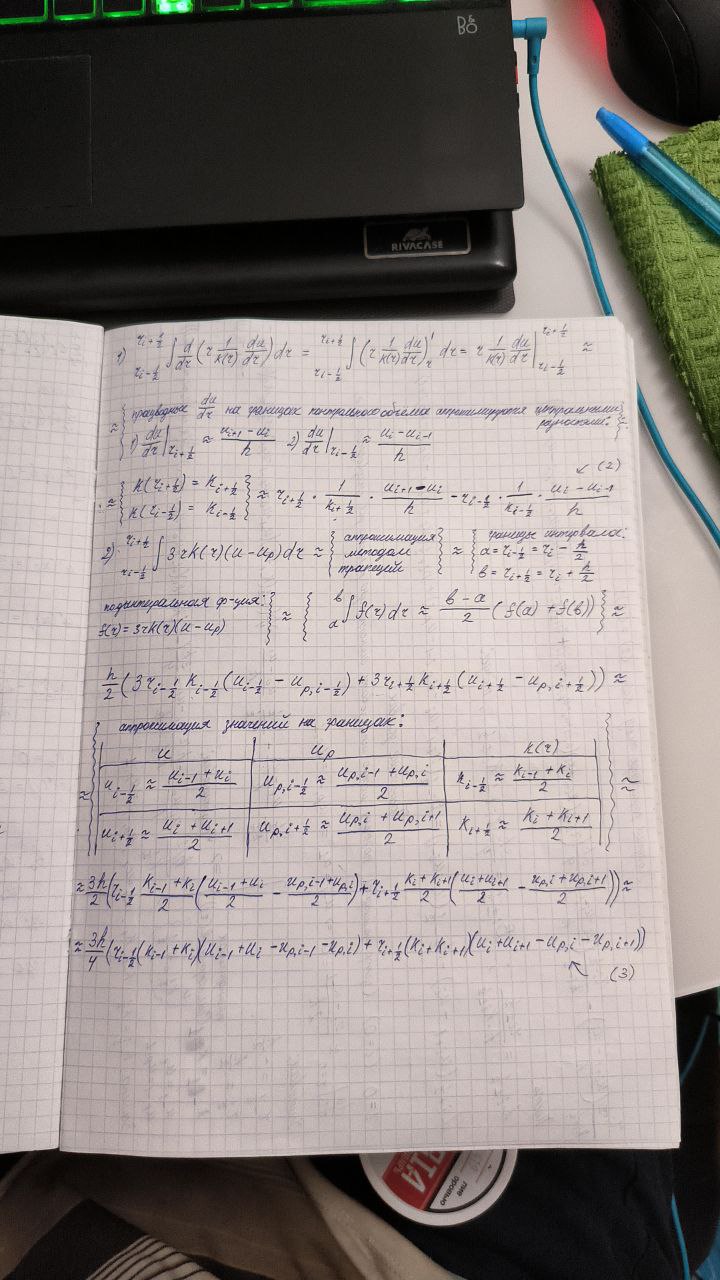 B&O
RIVACASE
1) r_{i-1/2}^{r_{i+1/2}} ∫ d/dr (r 1/k(r) du/dr) dr = r_{i-1/2}^{r_{i+1/2}} ∫ (r 1/k(r) du/dr)'_r dr = r 1/k(r) du/dr |_{r_{i-1/2}}^{r_{i+1/2}} ≈
≈ { du/dr на границах контрольного объема аппроксимируется центральными
разностями:
1) du/dr |_{r_{i+1/2}} ≈ (u_{i+1} - u_i)/h 2) du/dr |_{r_{i-1/2}} ≈ (u_i - u_{i-1})/h } ≈
≈ { k(r_{i+1/2}) = k_{i+1/2}
k(r_{i-1/2}) = k_{i-1/2} } ≈ r_{i+1/2} · 1/k_{i+1/2} · (u_{i+1} - u_i)/h - r_{i-1/2} · 1/k_{i-1/2} · (u_i - u_{i-1})/h ↙ (2)
2) r_{i-1/2}^{r_{i+1/2}} ∫ 3rk(r)(u - u_p) dr ≈ { аппроксимация
методом
трапеций } ≈ { границы интервала:
a = r_{i-1/2} = r_i - h/2
b = r_{i+1/2} = r_i + h/2
f(r) = 3rk(r)(u - u_p) } ≈ { _a^b ∫ f(r) dr ≈ (b - a)/2 (f(a) + f(b)) } ≈
h/2 (3r_{i-1/2} k_{i-1/2} (u_{i-1/2} - u_{p,i-1/2}) + 3r_{i+1/2} k_{i+1/2} (u_{i+1/2} - u_{p,i+1/2})) ≈
аппроксимация значений на границах:
u | u_p | k(r)
≈ { u_{i-1/2} ≈ (u_{i-1} + u_i)/2 | u_{p,i-1/2} ≈ (u_{p,i-1} + u_{p,i})/2 | k_{i-1/2} ≈ (k_{i-1} + k_i)/2 } ≈
u_{i+1/2} ≈ (u_i + u_{i+1})/2 | u_{p,i+1/2} ≈ (u_{p,i} + u_{p,i+1})/2 | k_{i+1/2} ≈ (k_i + k_{i+1})/2
≈ 3h/2 (r_{i-1/2} (k_{i-1} + k_i)/2 ((u_{i-1} + u_i)/2 - (u_{p,i-1} + u_{p,i})/2) + r_{i+1/2} (k_i + k_{i+1})/2 ((u_i + u_{i+1})/2 - (u_{p,i} + u_{p,i+1})/2)) ≈
≈ 3h/4 (r_{i-1/2} (k_{i-1} + k_i)(u_{i-1} + u_i - u_{p,i-1} - u_{p,i}) + r_{i+1/2} (k_i + k_{i+1})(u_i + u_{i+1} - u_{p,i} - u_{p,i+1}))
↖ (3)